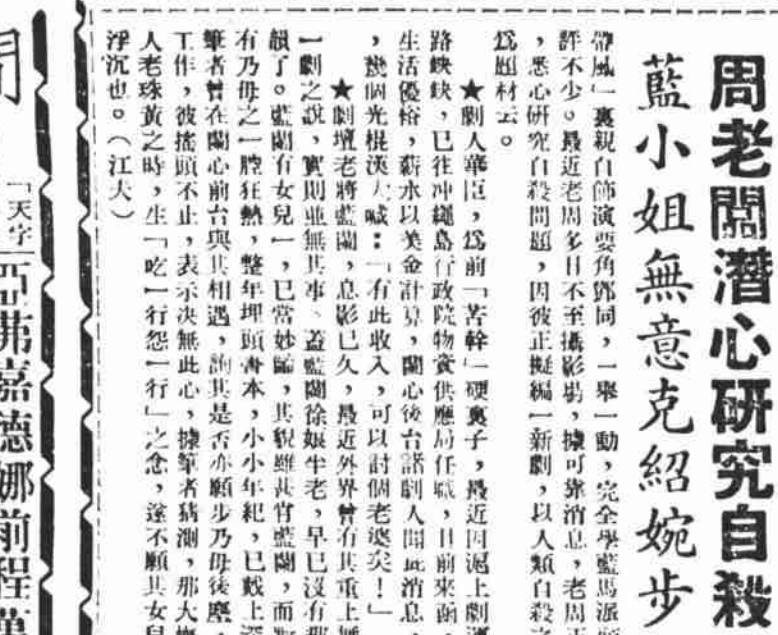 周老闆潛心研究自殺
藍小姐無意克紹婉步
帶風」裏親自飾演要角鄧同,一舉一動,完全學藍馬派
評不少。最近老周多日不至攝影場,據可靠消息,老周正
,悉心研究自殺問題,因彼正擬編一新劇,以人類自殺之
爲題材云。
★劇人華臣,爲前「苦幹」硬裏子,最近因滬上劇運
路缺缺,已往冲繩島行政院物資供應局任職,日前來函,
生活優裕,薪水以美金計算,蘭心後台諸劇人聞此消息,
,幾個光棍漢大喊:「有此收入,可以討個老婆矣!」
★劇壇老將藍蘭,息影已久,最近外界曾有其重上舞
一劇之說,實則並無其事、蓋藍蘭徐娘半老,早已沒有那
韻了。藍蘭有女兒一,已當妙齡,其貌雖甚肖藍蘭,而
有乃母之一腔狂熱,整年埋頭書本,小小年紀,已戴上深
筆者曾在蘭心前台與其相遇,詢其是否亦願步乃母後塵,
工作,彼搖頭不止,表示决無此心,據筆者猜測,那大概
人老珠黃之時,生「吃一行怨一行」之念,遂不願其女兒
浮沉也。(江夫)
「天字
亞弗嘉德娜前程萬